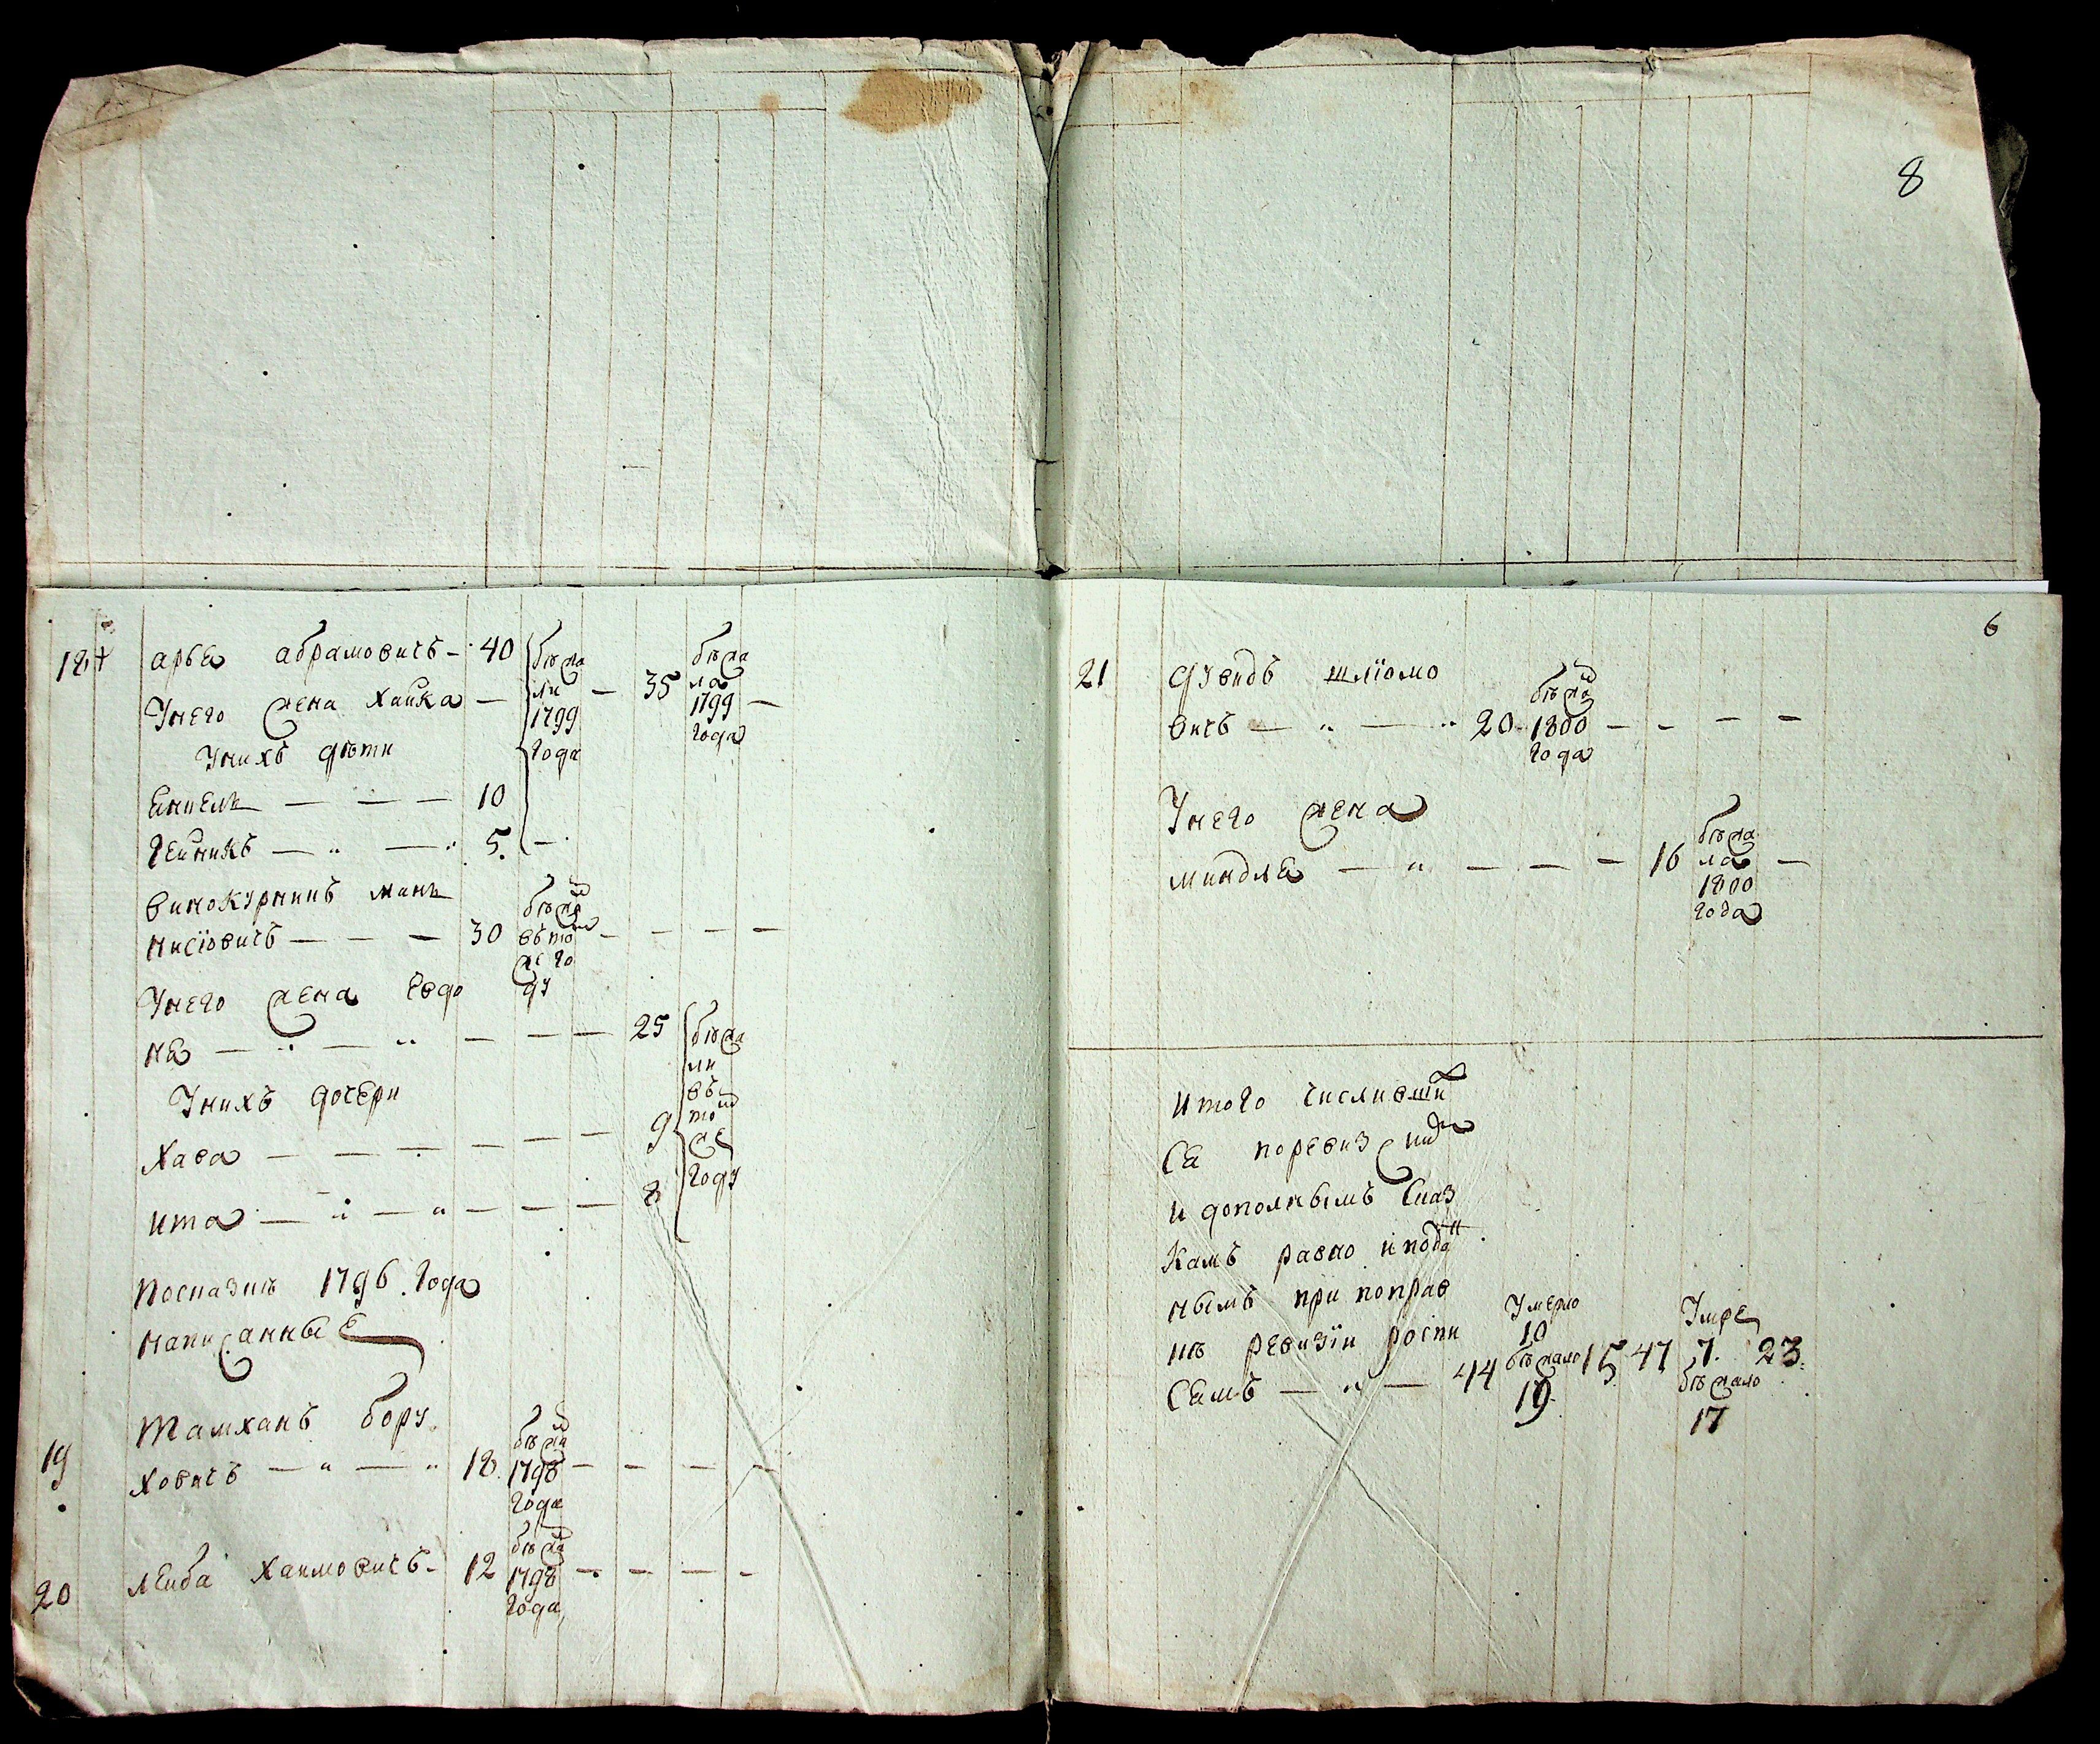 8
18 + арье абрамовичъ - 40 бѣжали 1799 года - 35 бѣжала 1799 года -
Унего жена хайка -
Унихъ дѣти
— — — 10
— „ — „ 5. -
винокурникъ
нисіовичъ — — — 30 бѣжалъ въ томже году - - - -
Унего жена Евдо
не — „ — „ — — — 25 бѣжали въ томже году
Унихъ дочери
Хава — — — — — — 9
ита — „ — „ — — — 8
посказкѣ 1796. года
написанные
19 Тамханъ бору
ховичъ — „ — „ 18. бѣжалъ 1798 года - - - -
20 леиба хаимовичъ - 12 бѣжалъ 1798 года - - - -
6
21 Дувидъ шліомо
вичъ — „ — „ 20 - бѣжалъ 1800 года - - - -
Унего жена
миндле — „ — — — 16 бѣжала 1800 года -
итого числивший
се поревизским
и дополнымъ сказ
камъ равно и подан
нымъ при поправ
кѣ ревизіи роспи
семъ — „ — 44 Умерло 10 бѣжало 19. 15 47 Умре 7. бѣжало 17 23.